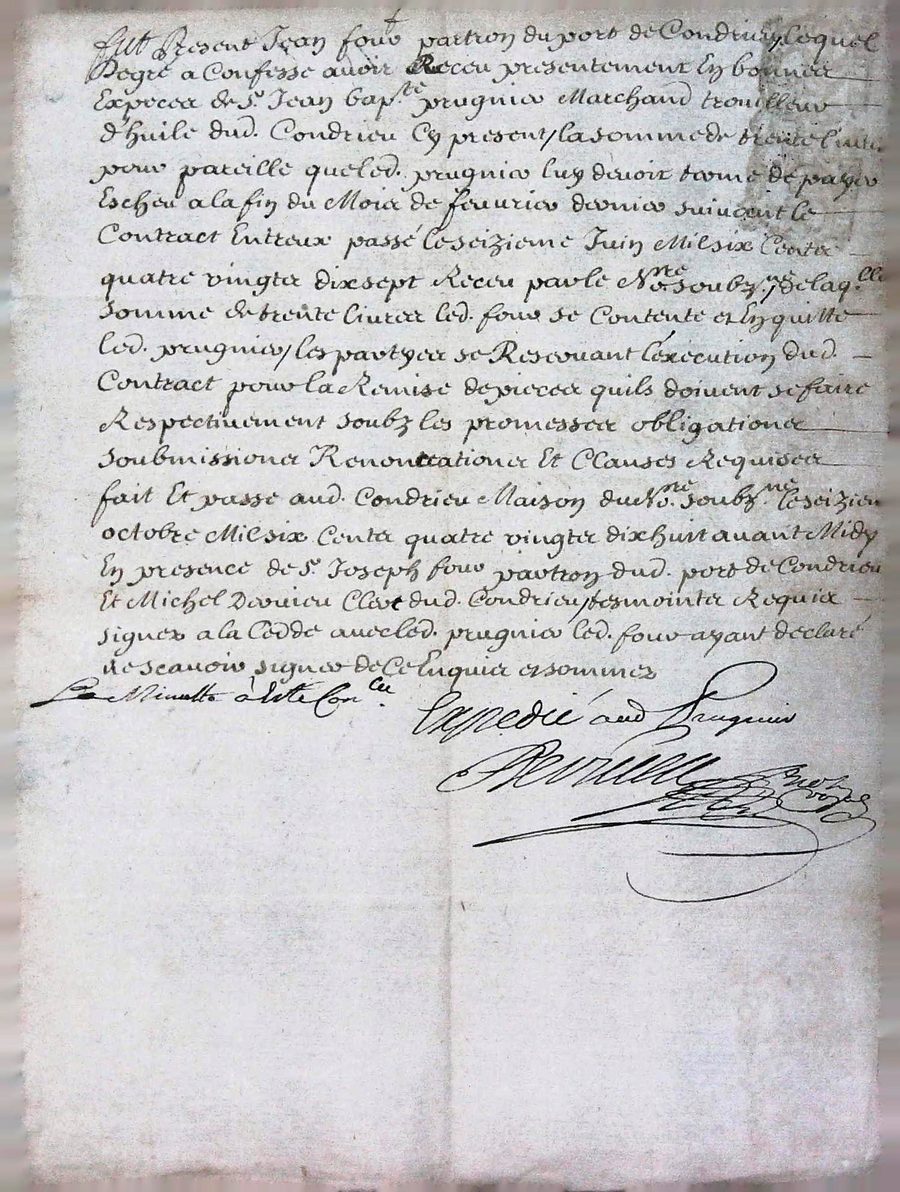 fut Present Jean four partron du port de Condrieu, Lequel
Degré a Confessé avoir Receu presentement En bonnes
Especes de Sr. Jean bapte. prugnier Marchand trouilleur
d'huile dud. Condrieu Cy present, la somme de trente livres
pour pareille que led. prugnier luy devoit terme de payer
Escheu a la fin du Mois de feuvrier dernier suivant le
Contract Entreux passé le seizieme Juin Mil six Centz
quatre vingtz dix sept Receu par le Nore. soubz.ne, de laq.lle
somme de trente livres led. four se Contente et En quitte
led. prugnier, les partyes se Reservant l'execution dud.
Contract pour la Remise de pieces quils doivent se faire
Respectivement soubz les promesses obligationes
soubmissiones Renontiationes Et Clauses Requises
fait Et passé aud. Condrieu Maison du Nore. soubz.ne le seizieme
octobre Mil six Centz quatre vingtz dix huit avant Midy
En presence de Sr. Joseph four partron dud. port de Condrieu
Et Michel Dervieu Clerc dud. Condrieu, tesmointz Requis
signez a la Cedde avec led. prugnier led. four ayant declaré
ne scavoir signer de Ce Enquis et sommez
La Minutte à esté Con.lee
Expedié aud Prugnier
Dervieu